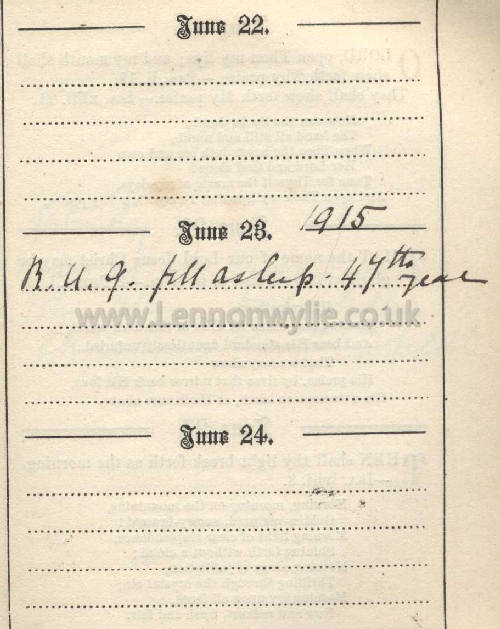 June 22.
June 23. 1915
B. U. G. fell asleep. 47th year
www.Lennonwylie.co.uk
June 24.